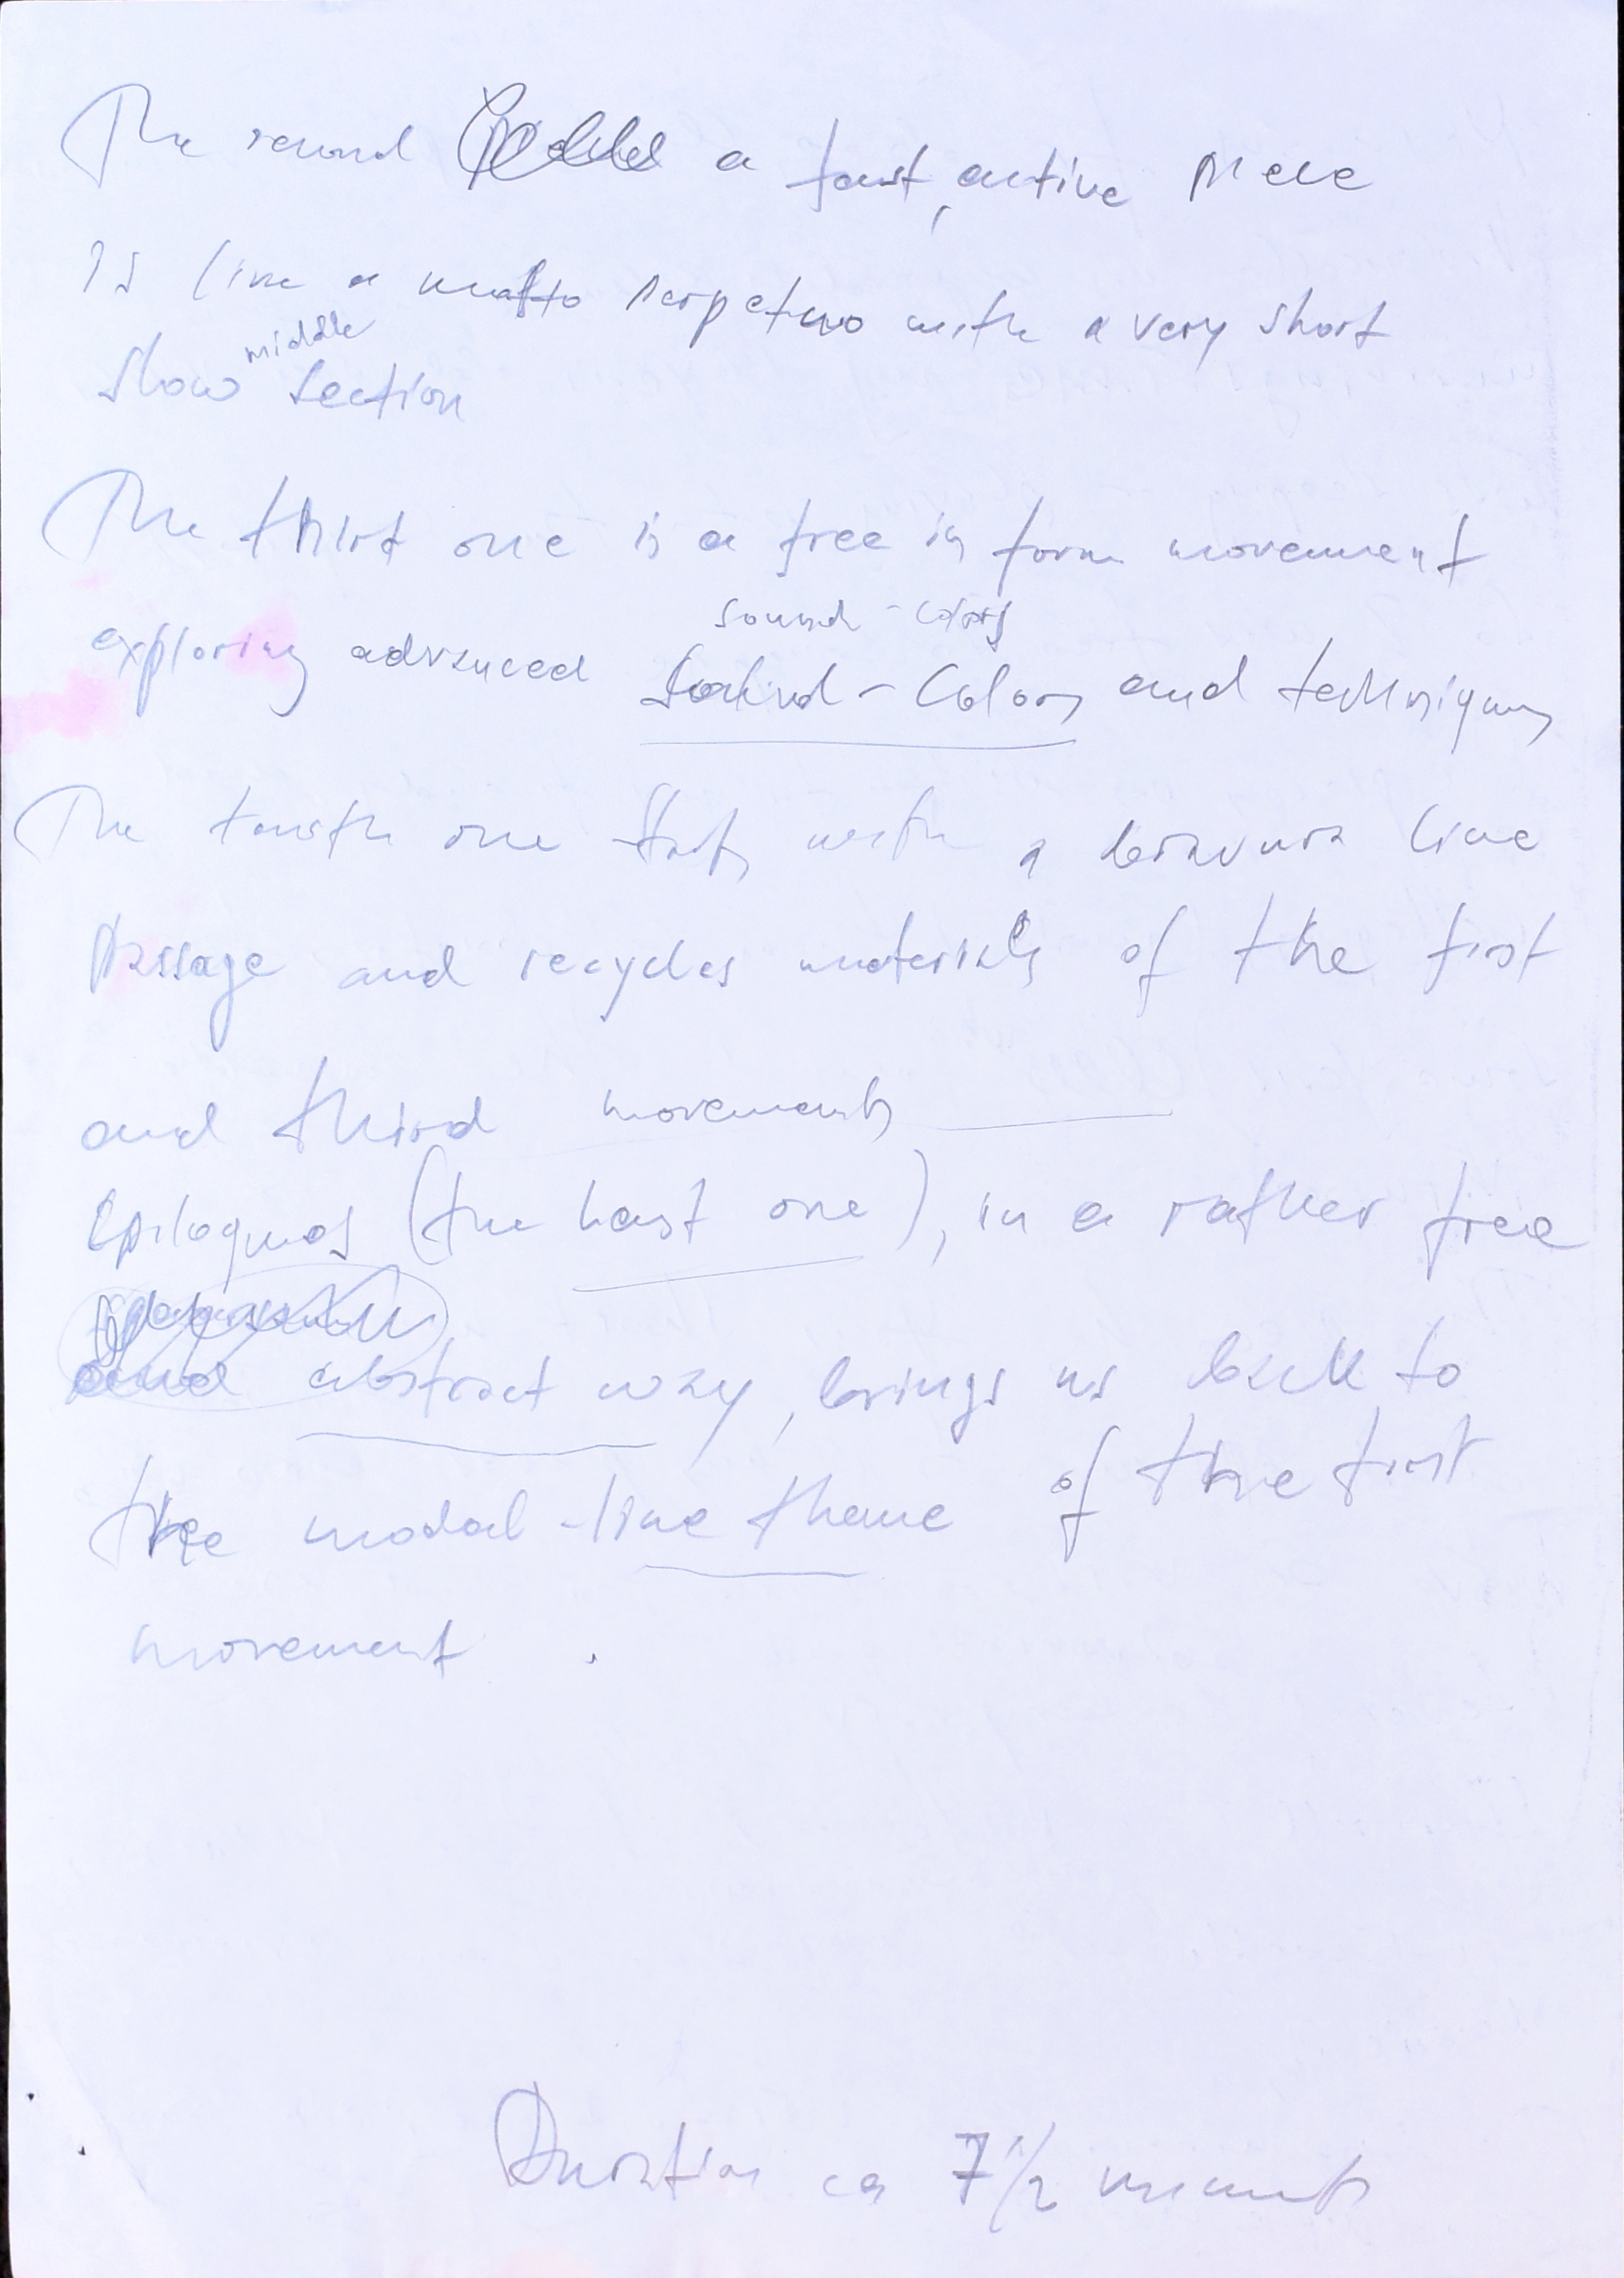 The second a fast, active piece
is like a moto perpetuo with a very short
slow middle section
The third one is a free in form movement
sound-colors
exploring advanced sound-colors and techniques
The fourth one starts with a bravura like
passage and recycles materials of the first
and third movements
Epilogues (the last one), in a rather free
and abstract way, brings us back to
the modal-like theme of the first
movement.
Duration ca 7 1/2 minuts